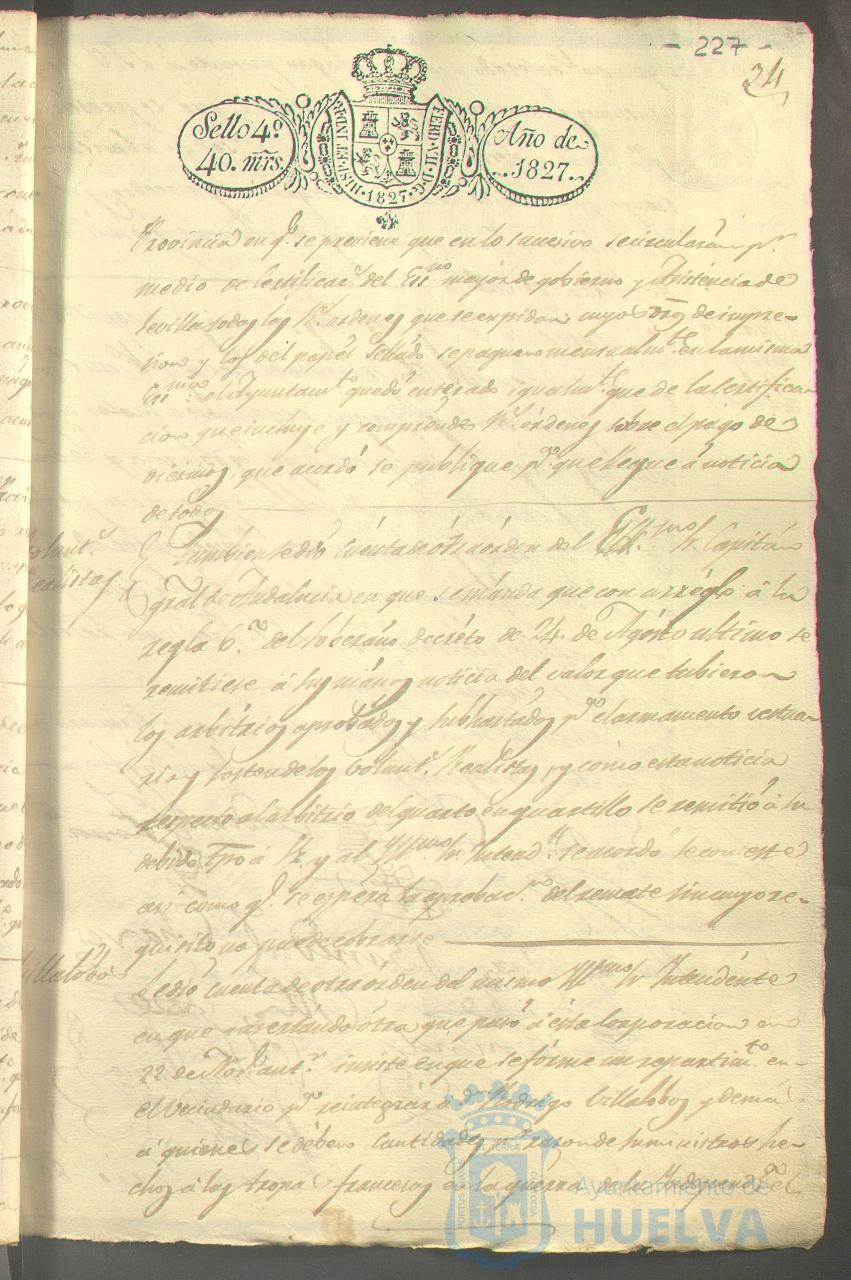 - 227 -
24
Sello 4º
40. mrs.
HISP. ET IND. R.
FERD. VII. D. G.
1827
Año de
1827.
Provincia en q.e se previene que en lo sucesivo se circularán p.r
medio de Certificac.n del Es.no mayor de gobierno y Asistencia de
Sevilla todas las R.s ordenes que se expidan cuyos dros de impre-
sion y los del papel Sellado se paguen mensualm.te en la misma
Es.nia el Ayuntam.to quedó enterado igualm.te que de la Certifica
cion que incluye y comprende R.s órdenes sobre el pago de
diezmos, que acordó se publique p.a que llegue á noticia
de todos
Volunt.s
Realistas
Tambien se dió Cuenta de otra órden del Ex.mo Sr. Capitán
gral de Andalucia en que se manda que con arreglo á la
regla 6.a del Soberano decréto de 24. de Agosto ultimo se
remitiese á sus manos noticia del valor que tubieron
los arbitrios aprobados y subhastados p.a el armamento vestua-
rio y sosten de los Volunt.s Realistas, y como esta noticia
respecto al arbitrio del quarto en quartillo se remitió á su
debido tpo á S.E. y al Sr. Intend.te se acordó se conteste
asi como q.e se espera la aprobac.n del remate sin cuyo re-
quisito no puede cobrarse
Villalobos
Se dió cuenta de otra órden del mismo Sr. Intendente
en que insertando ótra que pasó á ésta Corporacion en
22 de Nov.e ant.r insiste en que se fórme un repartim.to en-
el Vecindario p.a reintegrár á D. Rodrigo Villalobos y demas
á quienes se débén Cantidades p.r razon de suministros he-
chos á las tropas francesas en la guerra de la Independ.a el
Ayuntamiento de
HUELVA